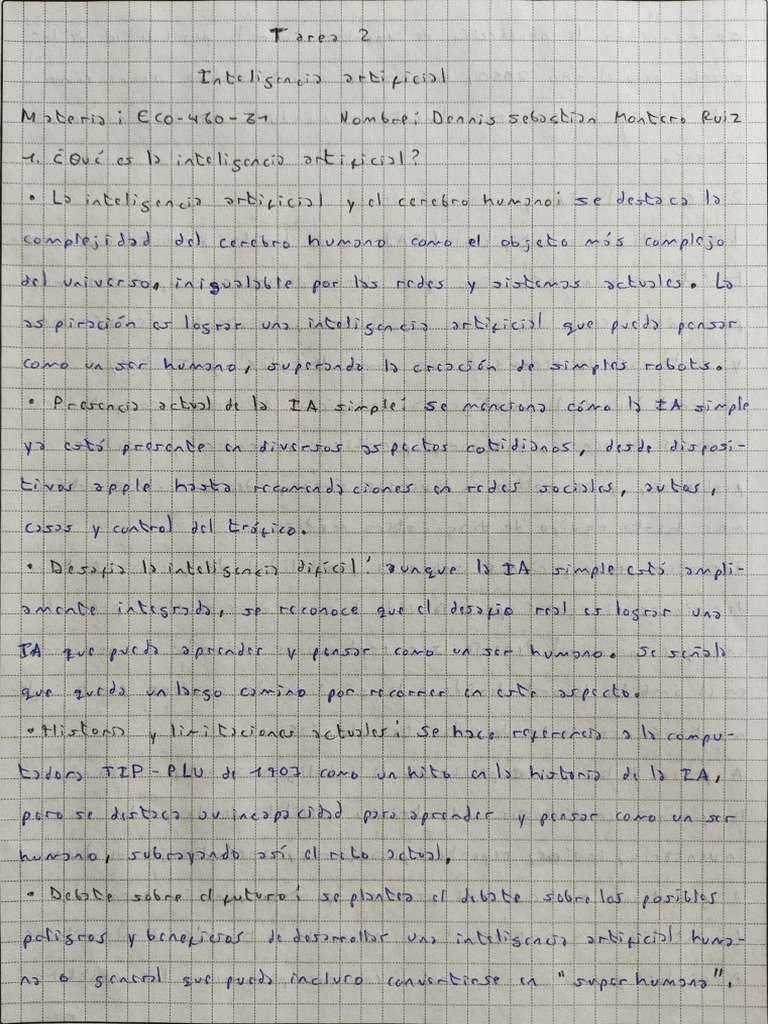 Tarea 2
Inteligencia artificial
Materia: ECO-460-Z1 Nombre: Dennis Sebastian Montero Ruiz
1. ¿Qué es la inteligencia artificial?
• La inteligencia artificial y el cerebro humano: se destaca la
complejidad del cerebro humano como el objeto más complejo
del universo, inigualable por las redes y sistemas actuales. La
aspiración es lograr una inteligencia artificial que pueda pensar
como un ser humano, superando la creación de simples robots.
• Presencia actual de la IA simple: se menciona cómo la IA simple
ya está presente en diversos aspectos cotidianos, desde disposi-
tivos apple hasta recomendaciones en redes sociales, autos,
casas y control del tráfico.
• Desafía la inteligencia difícil: aunque la IA simple está ampli-
amente integrada, se reconoce que el desafío real es lograr una
IA que pueda aprender y pensar como un ser humano. Se señala
que queda un largo camino por recorrer en este aspecto.
• Historia y limitaciones actuales: se hace referencia a la compu-
tadora TIP-PLU de 1907 como un hito en la historia de la IA,
pero se destaca su incapacidad para aprender y pensar como un ser
humano, subrayando así el reto actual.
• Debate sobre el futuro: se plantea el debate sobre los posibles
peligros y beneficios de desarrollar una inteligencia artificial huma-
na o general que pueda incluso convertirse en "super humana".